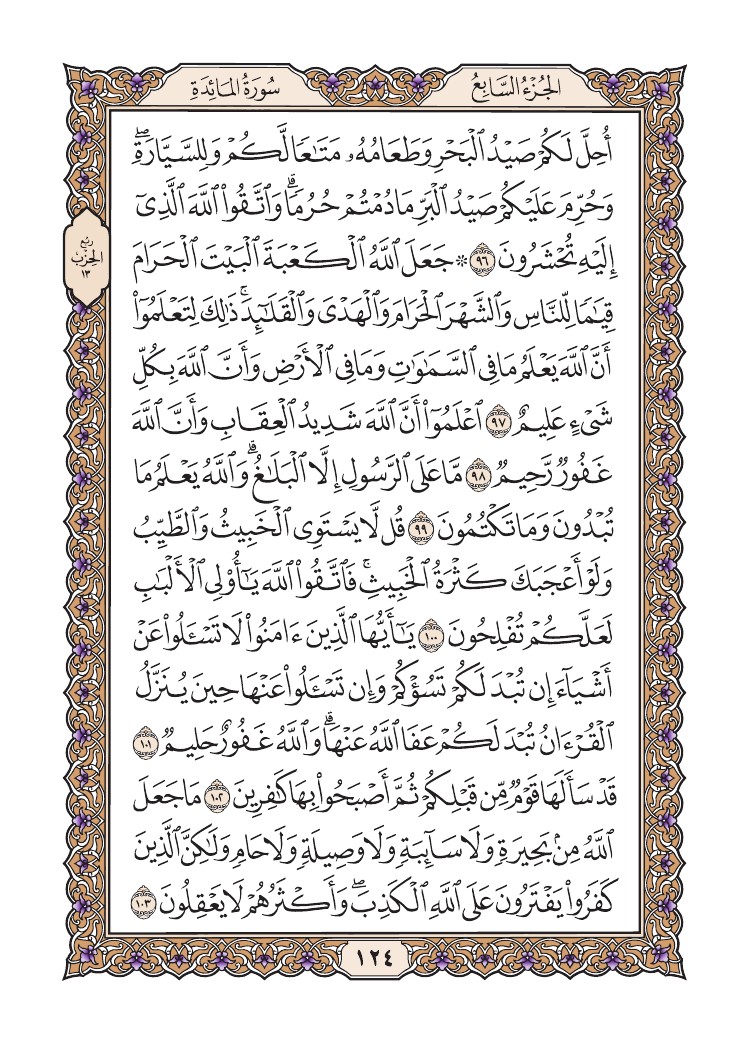 الجُزْءُ السَّابِعُ
سُورَةُ المَائِدَةِ
أُحِلَّ لَكُمْ صَيْدُ ٱلْبَحْرِ وَطَعَامُهُۥ مَتَٰعٗا لَّكُمْ وَلِلسَّيَّارَةِۖ
وَحُرِّمَ عَلَيْكُمْ صَيْدُ ٱلْبَرِّ مَا دُمْتُمْ حُرُمٗاۗ وَٱتَّقُوا۟ ٱللَّهَ ٱلَّذِىٓ
إِلَيْهِ تُحْشَرُونَ ٩٦ ۞ جَعَلَ ٱللَّهُ ٱلْكَعْبَةَ ٱلْبَيْتَ ٱلْحَرَامَ
قِيَٰمٗا لِّلنَّاسِ وَٱلشَّهْرَ ٱلْحَرَامَ وَٱلْهَدْىَ وَٱلْقَلَٰٓئِدَۚ ذَٰلِكَ لِتَعْلَمُوٓا۟
أَنَّ ٱللَّهَ يَعْلَمُ مَا فِى ٱلسَّمَٰوَٰتِ وَمَا فِى ٱلْأَرْضِ وَأَنَّ ٱللَّهَ بِكُلِّ
شَىْءٍ عَلِيمٌ ٩٧ ٱعْلَمُوٓا۟ أَنَّ ٱللَّهَ شَدِيدُ ٱلْعِقَابِ وَأَنَّ ٱللَّهَ
غَفُورٞ رَّحِيمٞ ٩٨ مَّا عَلَى ٱلرَّسُولِ إِلَّا ٱلْبَلَٰغُۗ وَٱللَّهُ يَعْلَمُ مَا
تُبْدُونَ وَمَا تَكْتُمُونَ ٩٩ قُل لَّا يَسْتَوِى ٱلْخَبِيثُ وَٱلطَّيِّبُ
وَلَوْ أَعْجَبَكَ كَثْرَةُ ٱلْخَبِيثِۚ فَٱتَّقُوا۟ ٱللَّهَ يَٰٓأُو۟لِى ٱلْأَلْبَٰبِ
لَعَلَّكُمْ تُفْلِحُونَ ١٠٠ يَٰٓأَيُّهَا ٱلَّذِينَ ءَامَنُوا۟ لَا تَسْـَٔلُوا۟ عَنْ
أَشْيَآءَ إِن تُبْدَ لَكُمْ تَسُؤْكُمْ وَإِن تَسْـَٔلُوا۟ عَنْهَا حِينَ يُنَزَّلُ
ٱلْقُرْءَانُ تُبْدَ لَكُمْ عَفَا ٱللَّهُ عَنْهَاۗ وَٱللَّهُ غَفُورٌ حَلِيمٞ ١٠١
قَدْ سَأَلَهَا قَوْمٞ مِّن قَبْلِكُمْ ثُمَّ أَصْبَحُوا۟ بِهَا كَٰفِرِينَ ١٠٢ مَا جَعَلَ
ٱللَّهُ مِنۢ بَحِيرَةٖ وَلَا سَآئِبَةٖ وَلَا وَصِيلَةٖ وَلَا حَامٖ وَلَٰكِنَّ ٱلَّذِينَ
كَفَرُوا۟ يَفْتَرُونَ عَلَى ٱللَّهِ ٱلْكَذِبَۖ وَأَكْثَرُهُمْ لَا يَعْقِلُونَ ١٠٣
رُبْع
الحِزْب
١٣
١٢٤